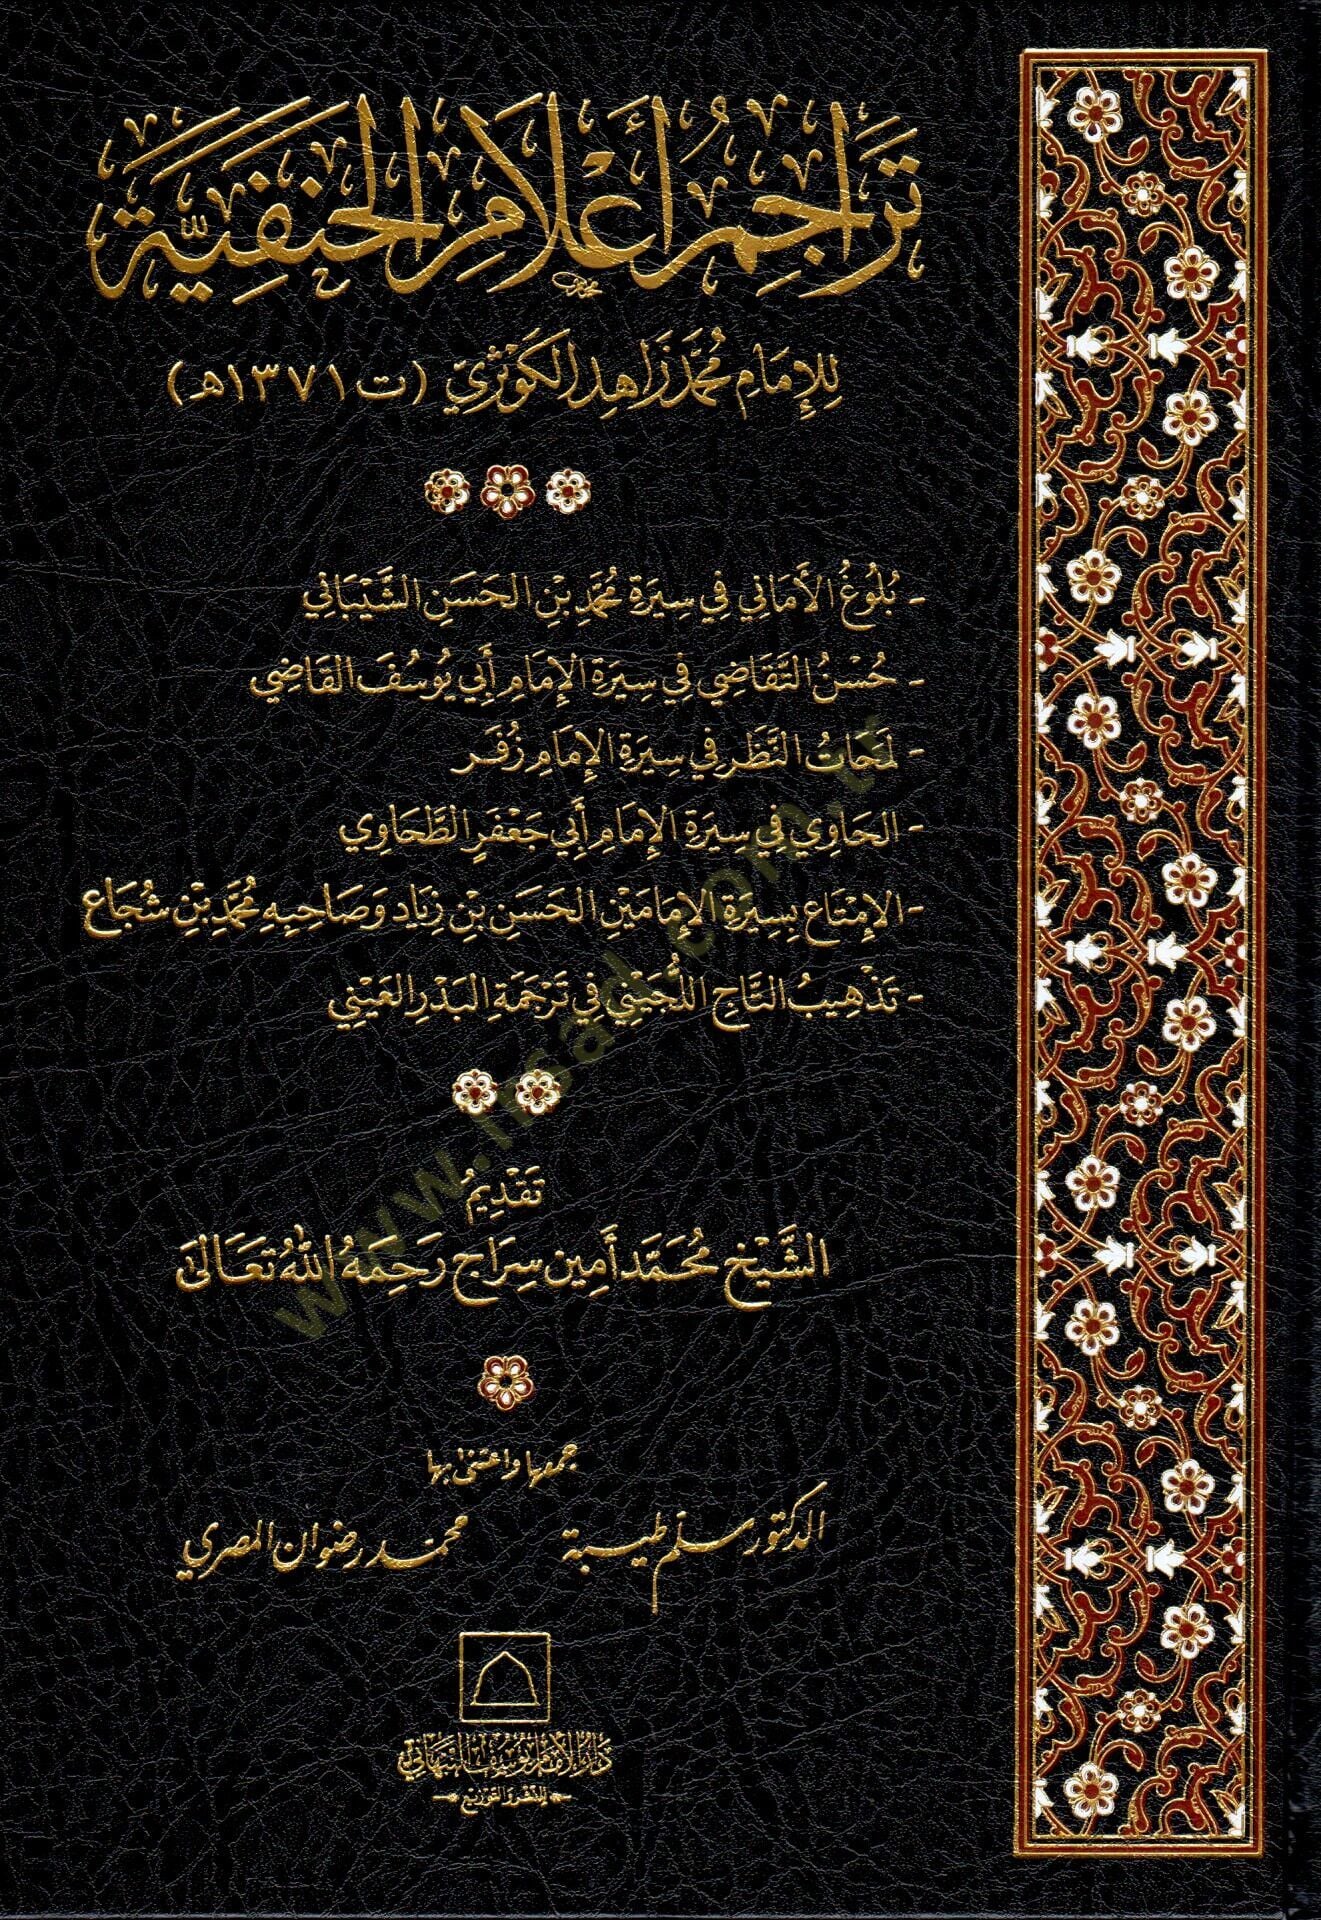 تَرَاجِمُ أَعْلَامِ الحَنَفِيَّة
لِلإِمَامِ مُحَمَّد زَاهِد الكَوْثَرِيّ (ت ١٣٧١هـ)
- بُلُوغُ الأَمَانِي فِي سِيرَةِ مُحَمَّدِ بْنِ الحَسَنِ الشَّيْبَانِي
- حُسْنُ التَّقَاضِي فِي سِيرَةِ الإِمَامِ أَبِي يُوسُفَ القَاضِي
- لَمَحَاتُ النَّظَرِ فِي سِيرَةِ الإِمَامِ زُفَر
- الحَاوِي فِي سِيرَةِ الإِمَامِ أَبِي جَعْفَرٍ الطَّحَاوِي
- الإِمْتَاع بِسِيرَةِ الإِمَامَيْنِ الحَسَنِ بْنِ زِيَاد وَصَاحِبِهِ مُحَمَّدِ بْنِ شُجَاع
- تَذْهِيبُ التَّاجِ اللُّجَيْنِي فِي تَرْجَمَةِ البَدْرِ العَيْنِي
تَقْدِيمُ
الشَّيْخ مُحَمَّد أَمِين سِرَاج رَحِمَهُ اللهُ تَعَالَى
جمعها واعتنى بها
الدكتور سلم طيبة محمد رضوان المصري
دَارُ الإِمَامِ يُوسُفَ النَّبْهَانِي
لِلنَّشْرِ وَالتَّوْزِيع
www.insad.com.tr